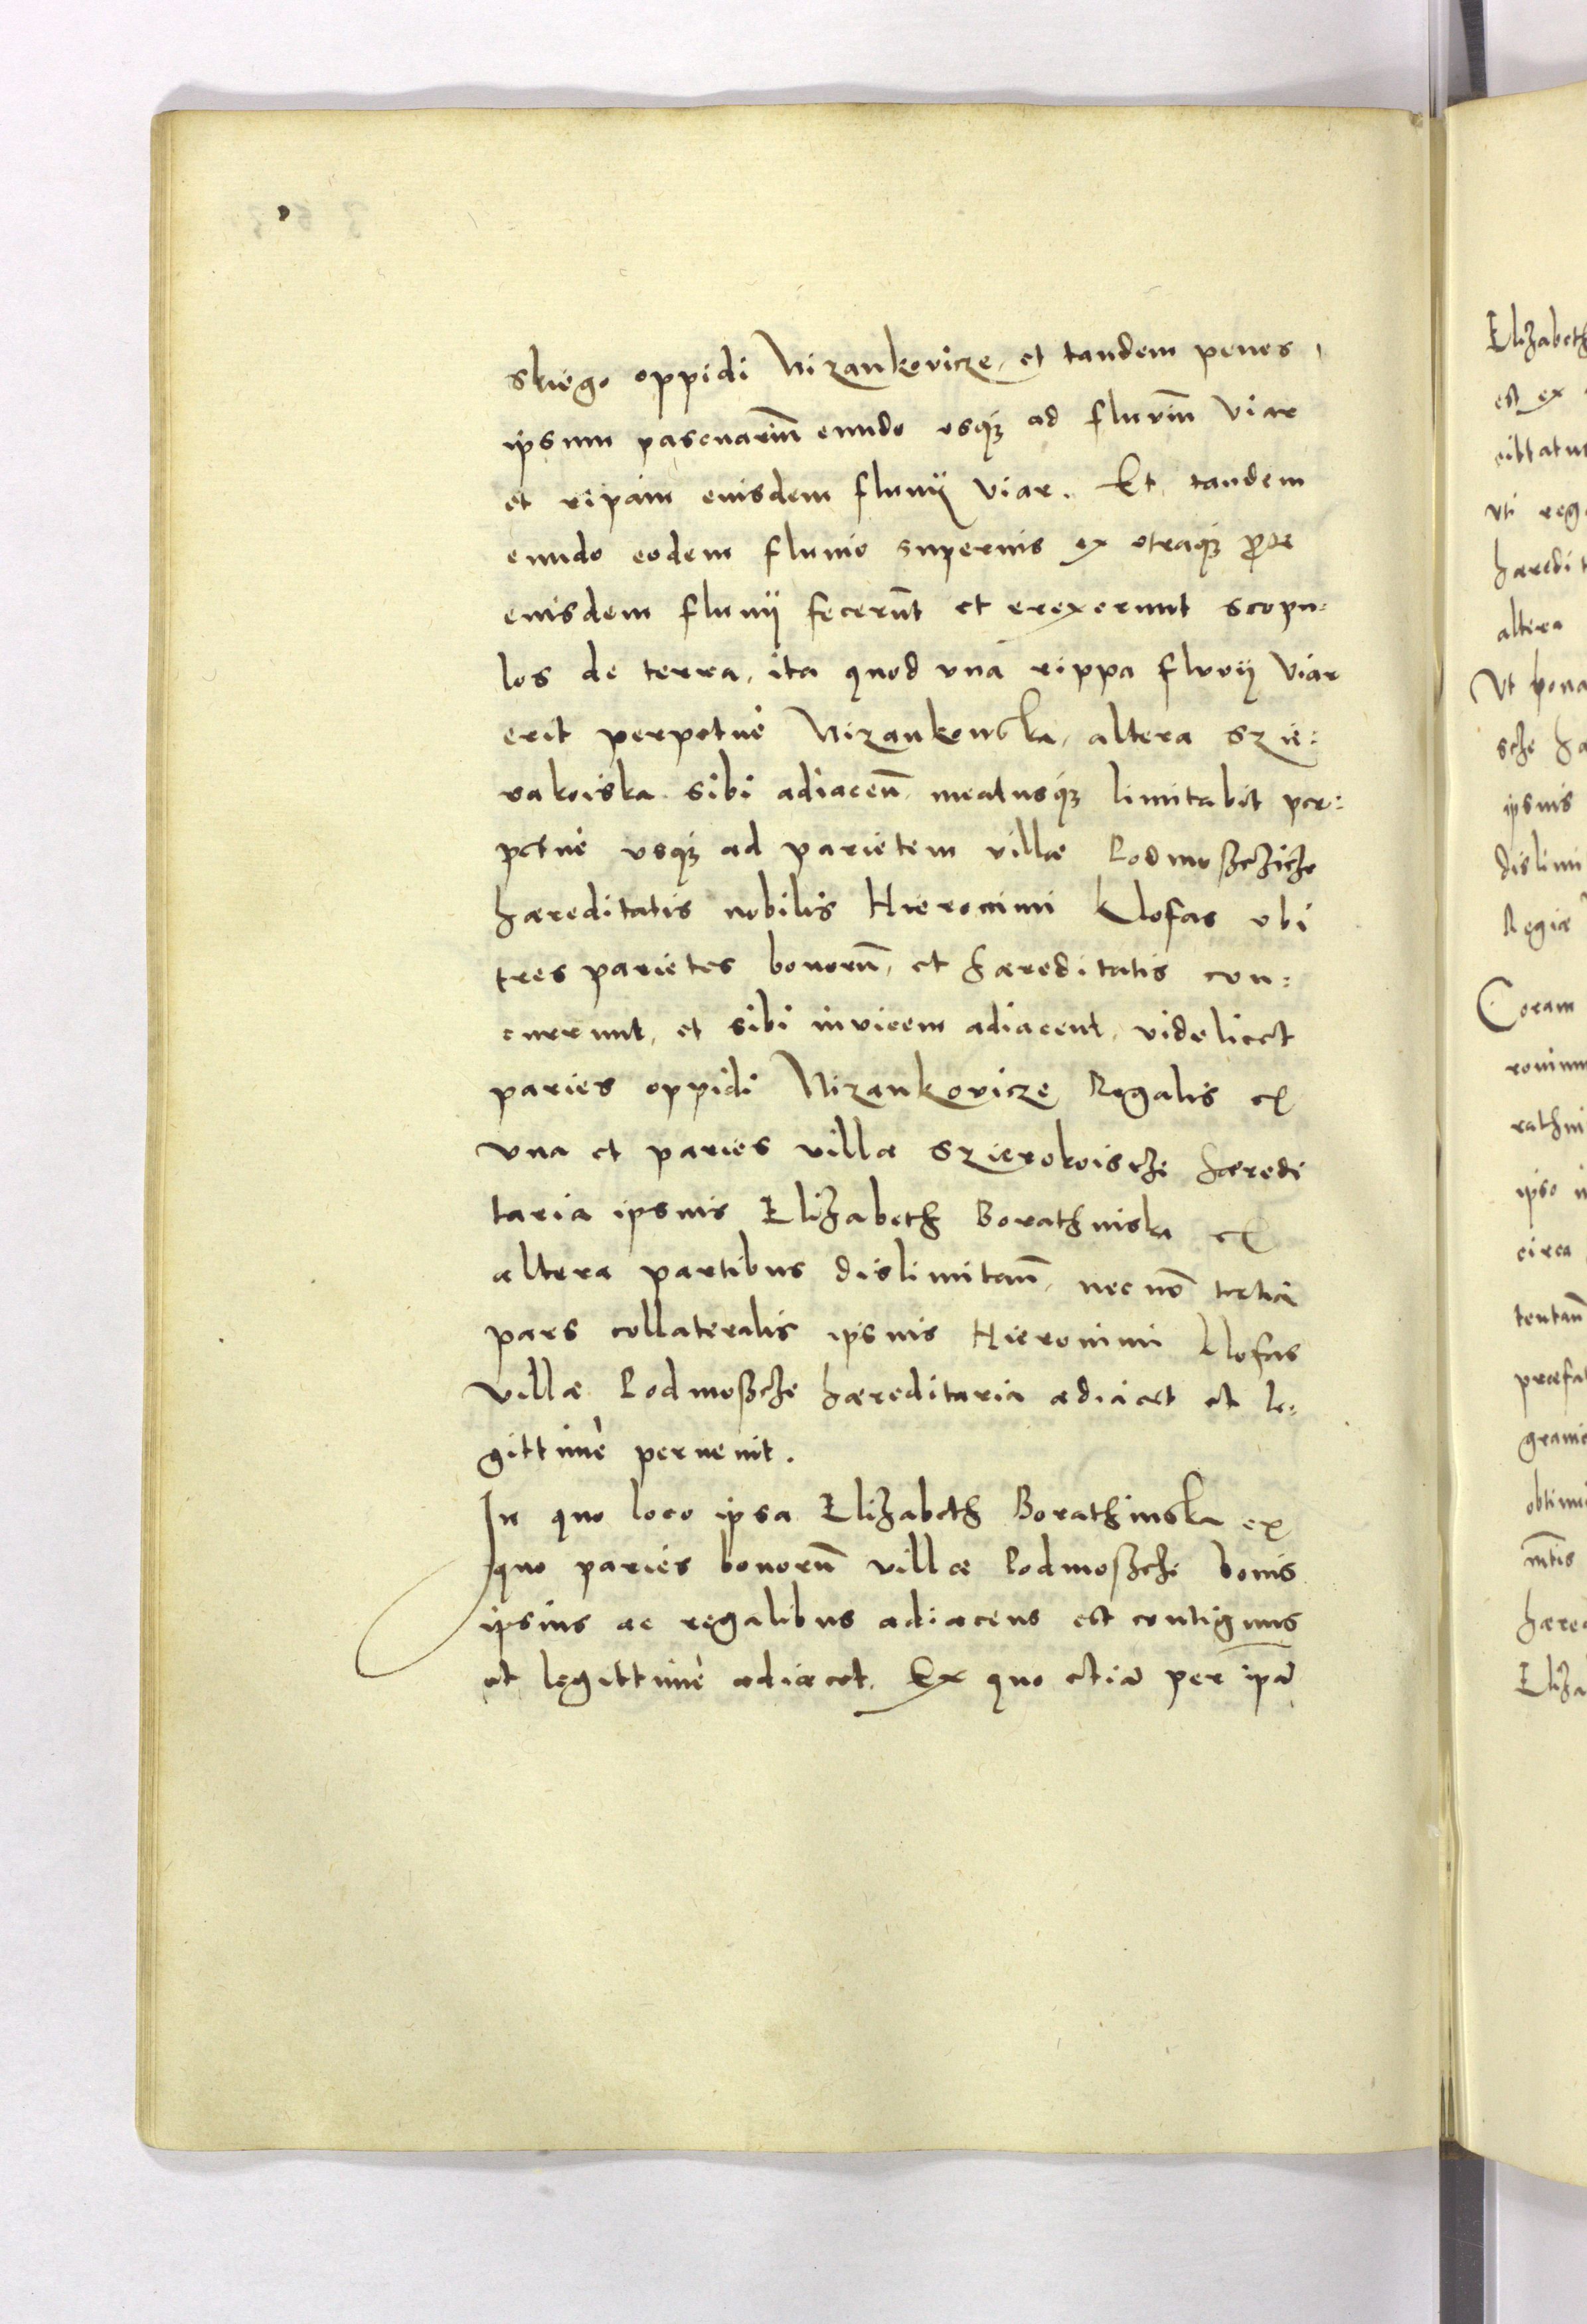 skiego oppidi Nizankovicze, et tandem penes
ipsum pascuariũ eundo vsq; ad fluviũ Viar
et ripam eiusdem fluuij Viar. Et tandem
eundo eodem fluuio supernis ex vtraq; p̱te
eiusdem fluuij fecerũt et erexerunt scopu:
los de terra, ita quod vna rippa fluvij Viar
erit perpetuè Nizankowska, altera Szie:
rakoiska sibi adiacen̄. meatusq; limitabit per:
petuè vsq; ad parietem villæ Podmoßczicze
hæreditatis nobilis Hieronimi Klofas vbi
tres parietes bonorũ, et hæreditatis con:
currunt, et sibi inuicem adiacent, videlicet
paries oppidi Nizankovicze Regalis ex
vna et paries villæ Szierokoische hæredi
taria ipsius Elizabeth Borathniska ex
altera partibus dislimitan̄, nec nõ tertia
pars collateralis ipsius Hieronimi Klofas
villæ Podmoßche hæreditaria adiacet et le:
gittimè peruenit.
In quo loco ipsa Elizabeth Borathinska ex
quo paries bonorũ villæ Podmoßche bonis
ipsius ac regalibus adiacens est contiguus
et legittimè adiacet. Ex quo etiã per ipã
Elizabeth
est ex
uti reg
hæredit
altera
Vt bona
sche hæ
ipsius
dislimi
Regiæ
Coram
ronimu
rathni
ipso in
circa
tentan̄
præfat
granic
obtinu
hæred
Eliza